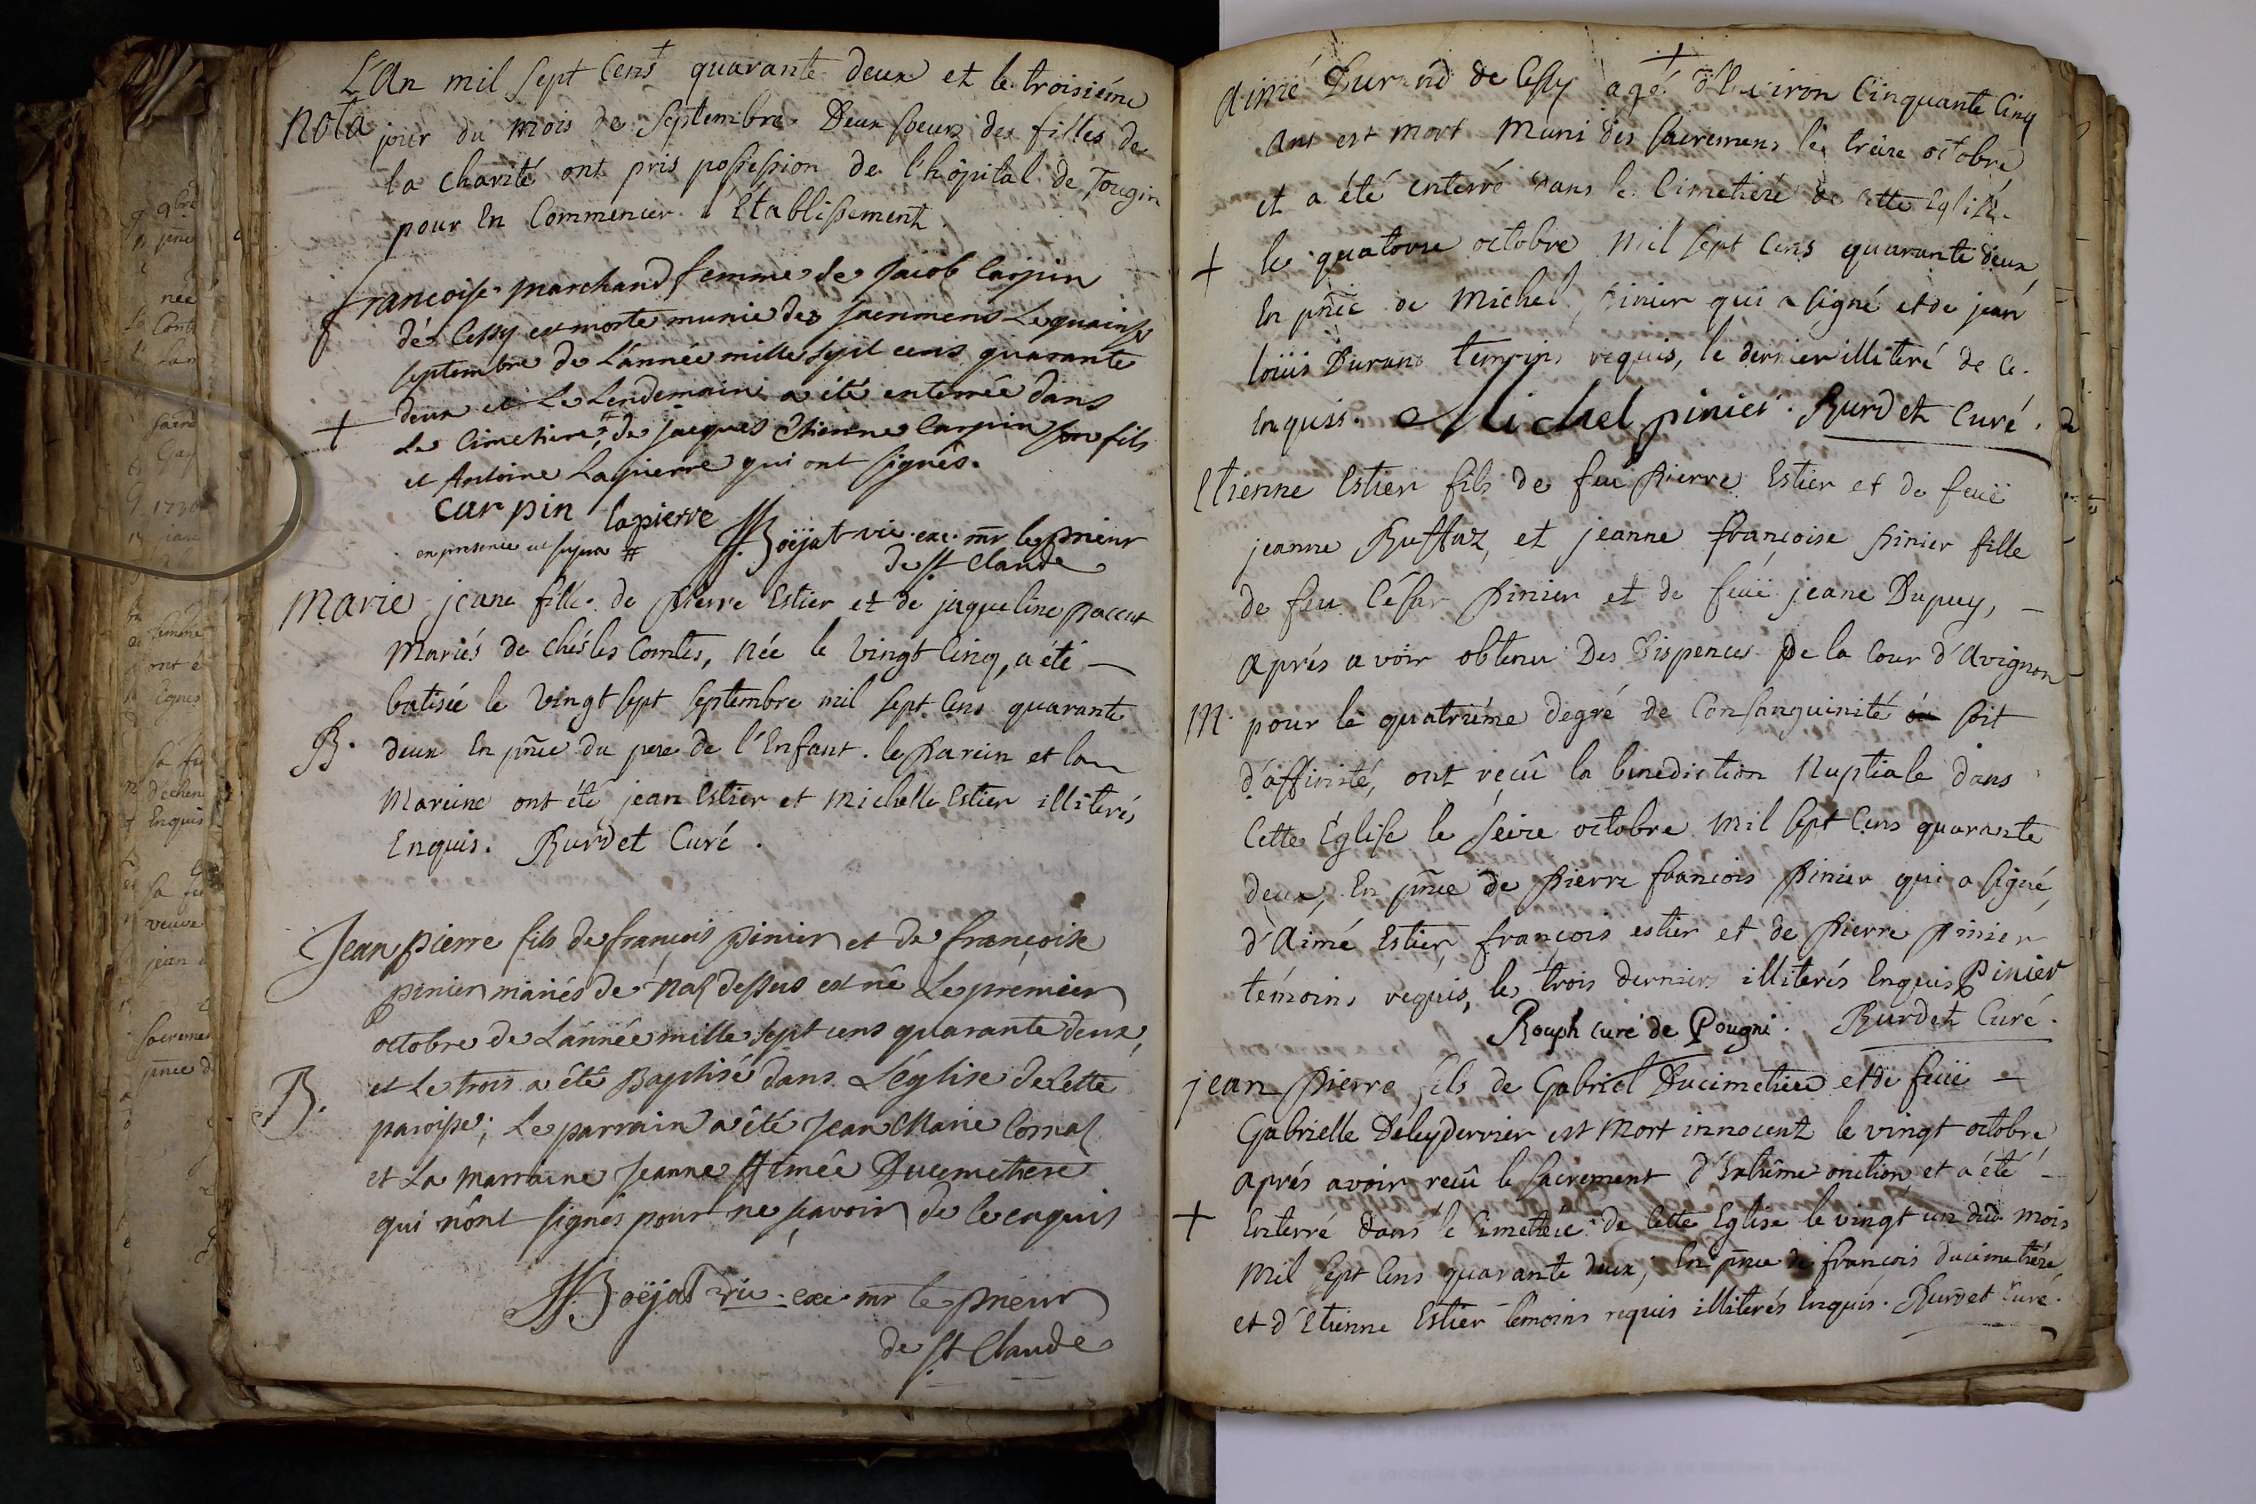 L'An mil sept Cens quarante deux et le troisiéme
Nota jour du mois de Septembre Deux soeurs des filles de
la charité ont pris possession de l'hôpital de Tougin
pour En Commencer l'Établissement.
francoise marchand femme de Jacob Carpin
de Cessy est morte munie des sacremens Le quainse
septembre de L'année mille sept cens quarante
deux et Le Lendemain a été enterrée dans
+ Le Cimetiere, # de jacques Etienne Carpin son fils
et Antoine Lapierre qui ont signés.
Carpin lapierre
en presence cut supra # JBoëjat vic. exc. mr le prieur
de st Claude
Marie jeane fille de Pierre Estier et de jaqueline paccut
Mariés de chés les Comtes, Née le Vingt Cinq, a été
batisée le Vingt sept Septembre mil sept Cens quarante
B. deux En pñce du pere de l'Enfant. le Parein et la
Mareine ont été jean Estier et Michelle Estier illiterés
Enquis. Burdet Curé.
Jean pierre fils de françois pinier et de françoise
pinier mariés de Naz dessus est né Le premier
octobre de L'année mille sept cens quarante deux,
B. et Le trois a été Baptisé dans L'église de Cette
paroisse; Le parrain a été Jean Marie Cornaz
et La Marraine Jeanne Aimée Ducimetiere
qui n'ont signés pour ne sçavoir de ce enquis
JBoëjat vic. exc mr le prieur
de st Claude
Aimé Durand de Cessy agé d'Environ Cinquante Cinq
Ans est mort Muni des sacremens le treize octobre
et a été enterré dans le Cimetiére de cette Eglise
+ le quatorze octobre Mil sept Cens quarante deux
En pñce de Michel pinier qui a signé et de jean
loüis Durand temoins requis, le dernier illiteré de ce
Enquis. Michel pinier. Burdet Curé.
Etienne Estier fils de feu Pierre Estier et de feuë
jeanne Ruffaz, et jeanne françoise Pinier fille
de feu César Pinier et de feuë jeane Dupuy,
aprés avoir obtenu Des Dispences De la Cour d'Avignon
M. pour le quatriéme degré de Consanguinité soit
d'affinité, ont reçû la bénédiction Nuptiale dans
Cette Église le séize octobre Mil sept Cens quarante
deux, En pñce de Pierre françois Pinier qui a signé,
d'Aimé Estier, françois estier et de Pierre pinier
témoins requis, les trois derniers illiterés Enquis Pinier
Rouph curé de Pougni. Burdet Curé.
jean Pierre fils de Gabriel Ducimetiere et de feuë
Gabrielle Deleydervier est Mort innocent le vingt octobre
aprés avoir recû le sacrement d'Extrême onction, et a été
+ Enterré dans le Cimetiére de Cette Eglise le vingt un dud. mois
Mil sept Cens quarante deux, En pñce de françois ducimetiére
et d'Etienne Estier témoins requis illiterés Enquis. Burdet Curé.